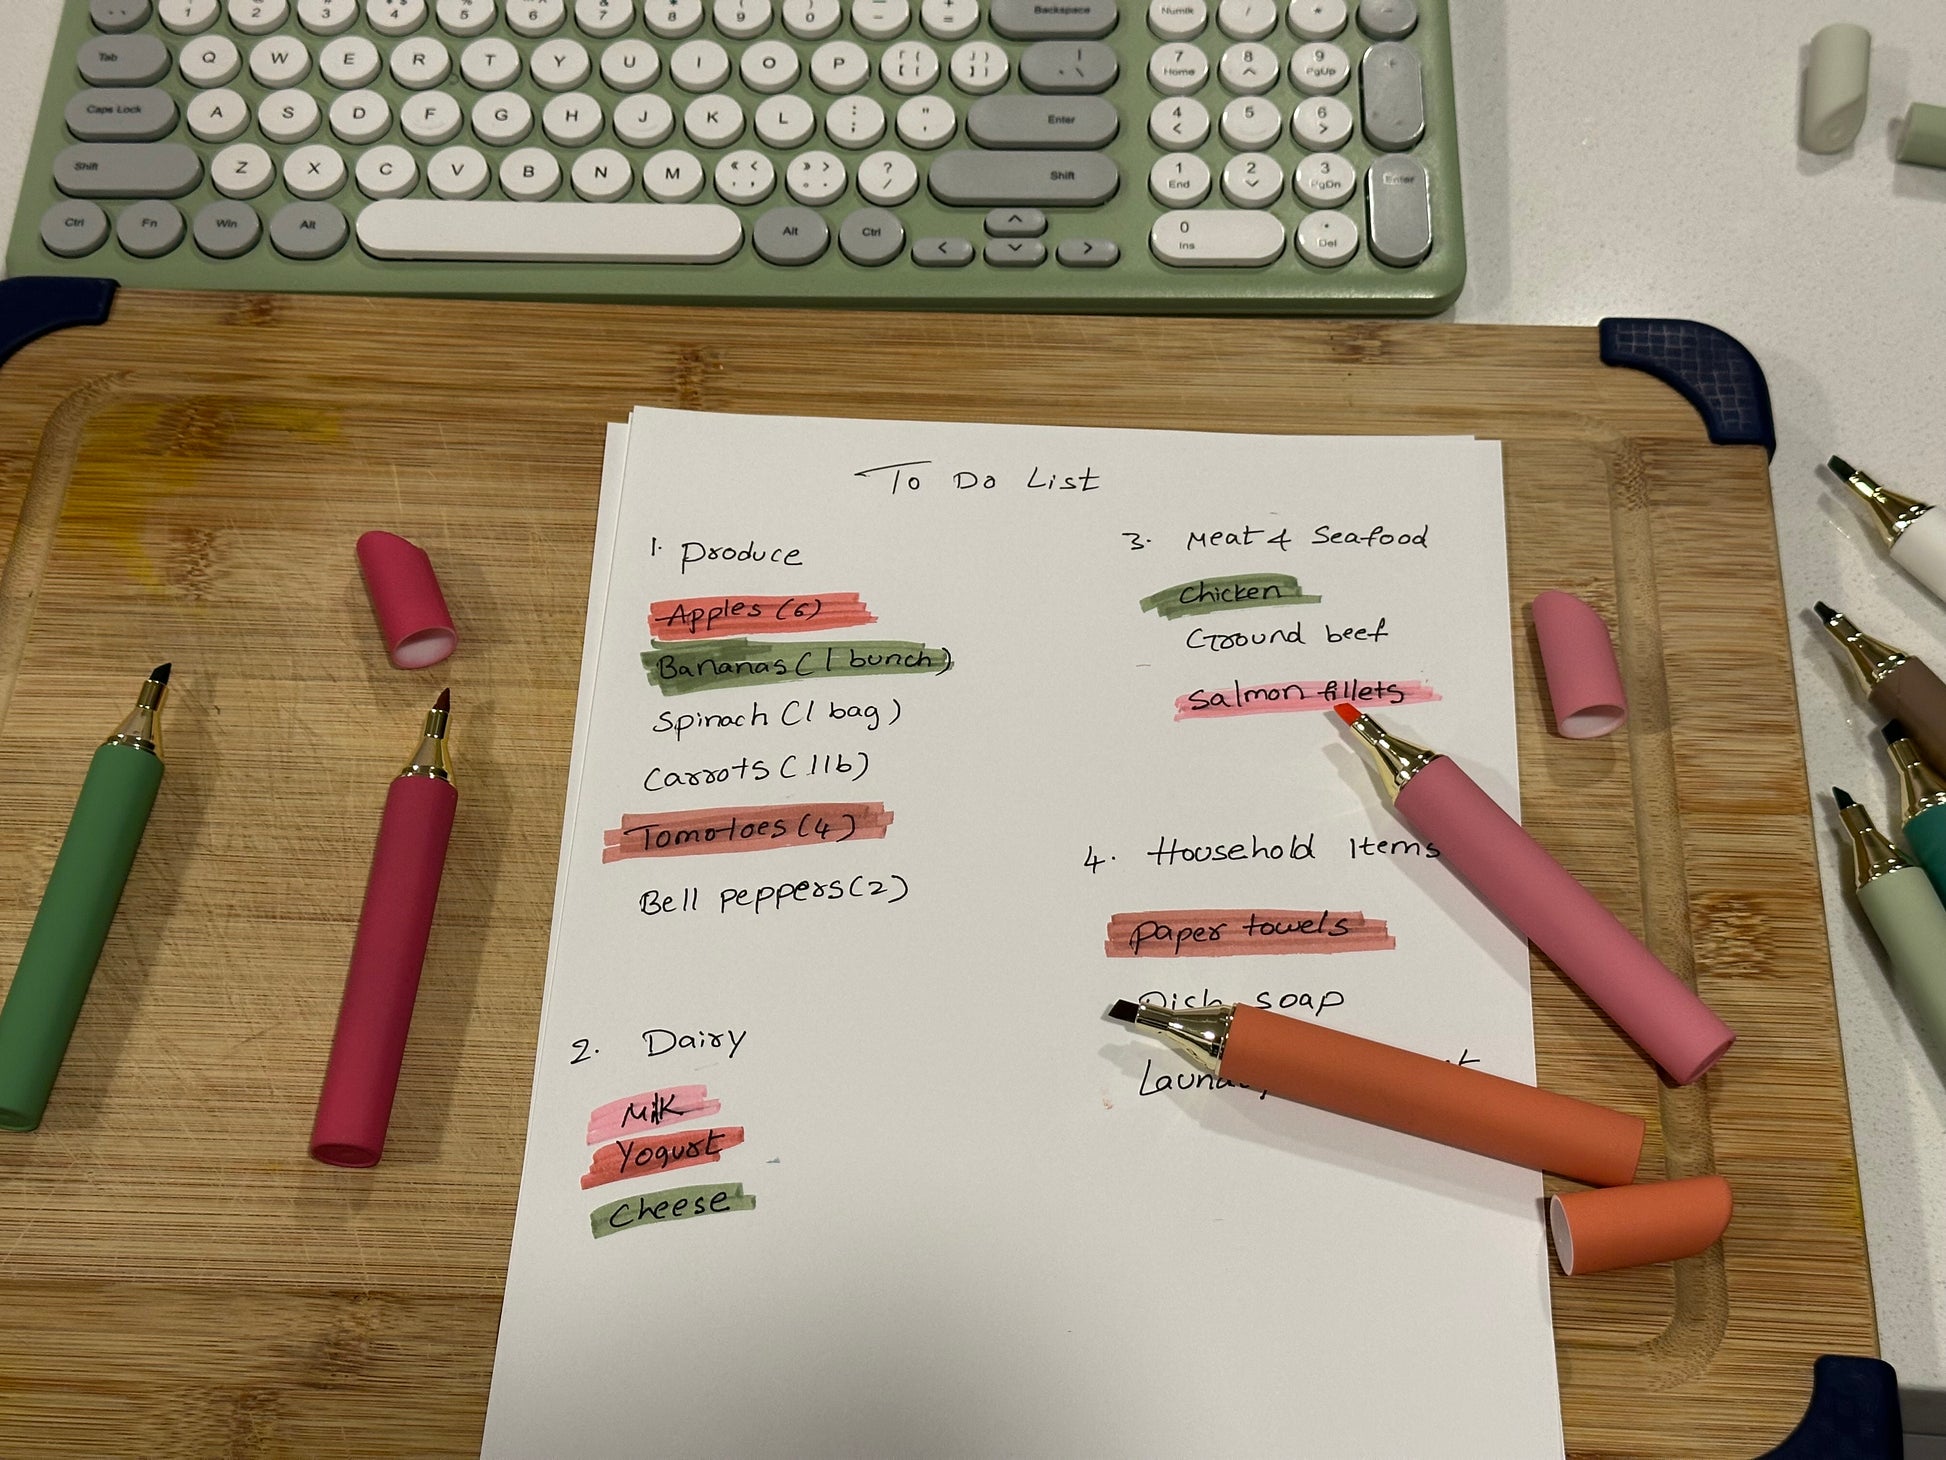 1 2 3 4 5 6 7 8 9 0 - + = Backspace Numlk / * -
Tab Q W E R T Y U I O P { [ } ] | \ 7 Home 8 9 PgUp +
Caps Lock A S D F G H J K L : ; " ' Enter 4 < 5 6 >
Shift Z X C V B N M < , > . ? / Shift 1 End 2 3 PgDn Enter
Ctrl Fn Win Alt Alt Ctrl < > 0 Ins . Del
To Do List
1. Produce
Apples (6)
Bananas (1 bunch)
Spinach (1 bag)
Carrots (1lb)
Tomotoes (4)
Bell peppers (2)
2. Dairy
Milk
Yogurt
Cheese
3. Meat & Seafood
Chicken
Ground beef
Salmon fillets
4. Household Items
Paper towels
Dish soap